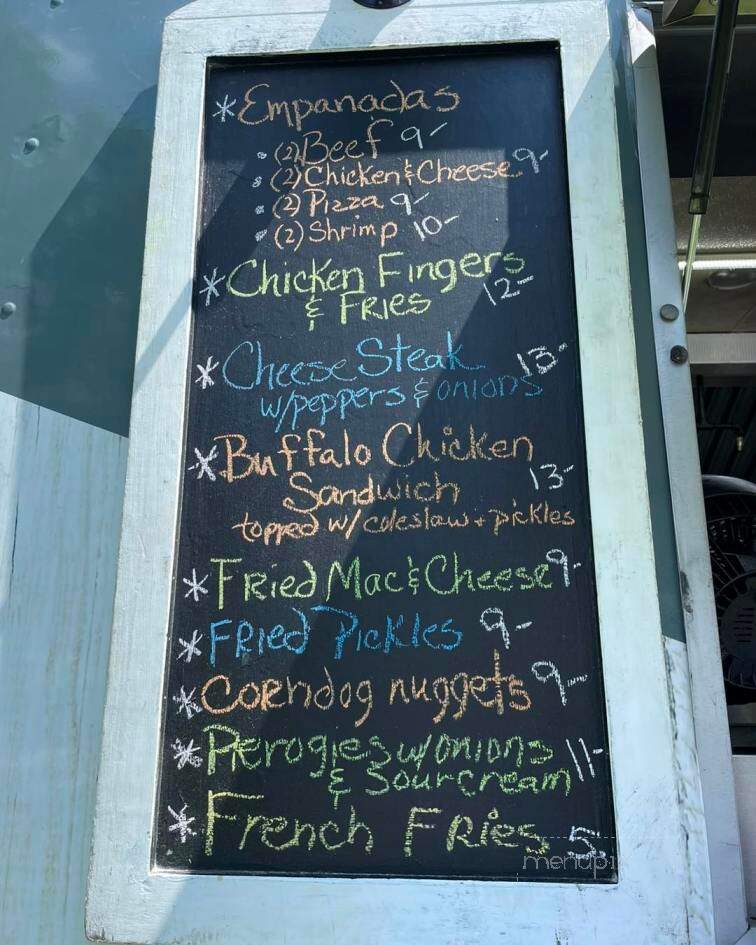 * Empanadas
(2) Beef 9-
(2) Chicken & Cheese 9-
(2) Pizza 9-
(2) Shrimp 10-
* Chicken Fingers
& Fries 12-
* Cheese Steak 15-
w/peppers & onions
* Buffalo Chicken
Sandwich 13-
topped w/ coleslaw + pickles
* Fried Mac & Cheese 9-
* Fried Pickles 9-
* Corndog nuggets 9-
* Pierogies w/onions
& Sourcream 11-
* French Fries 5-